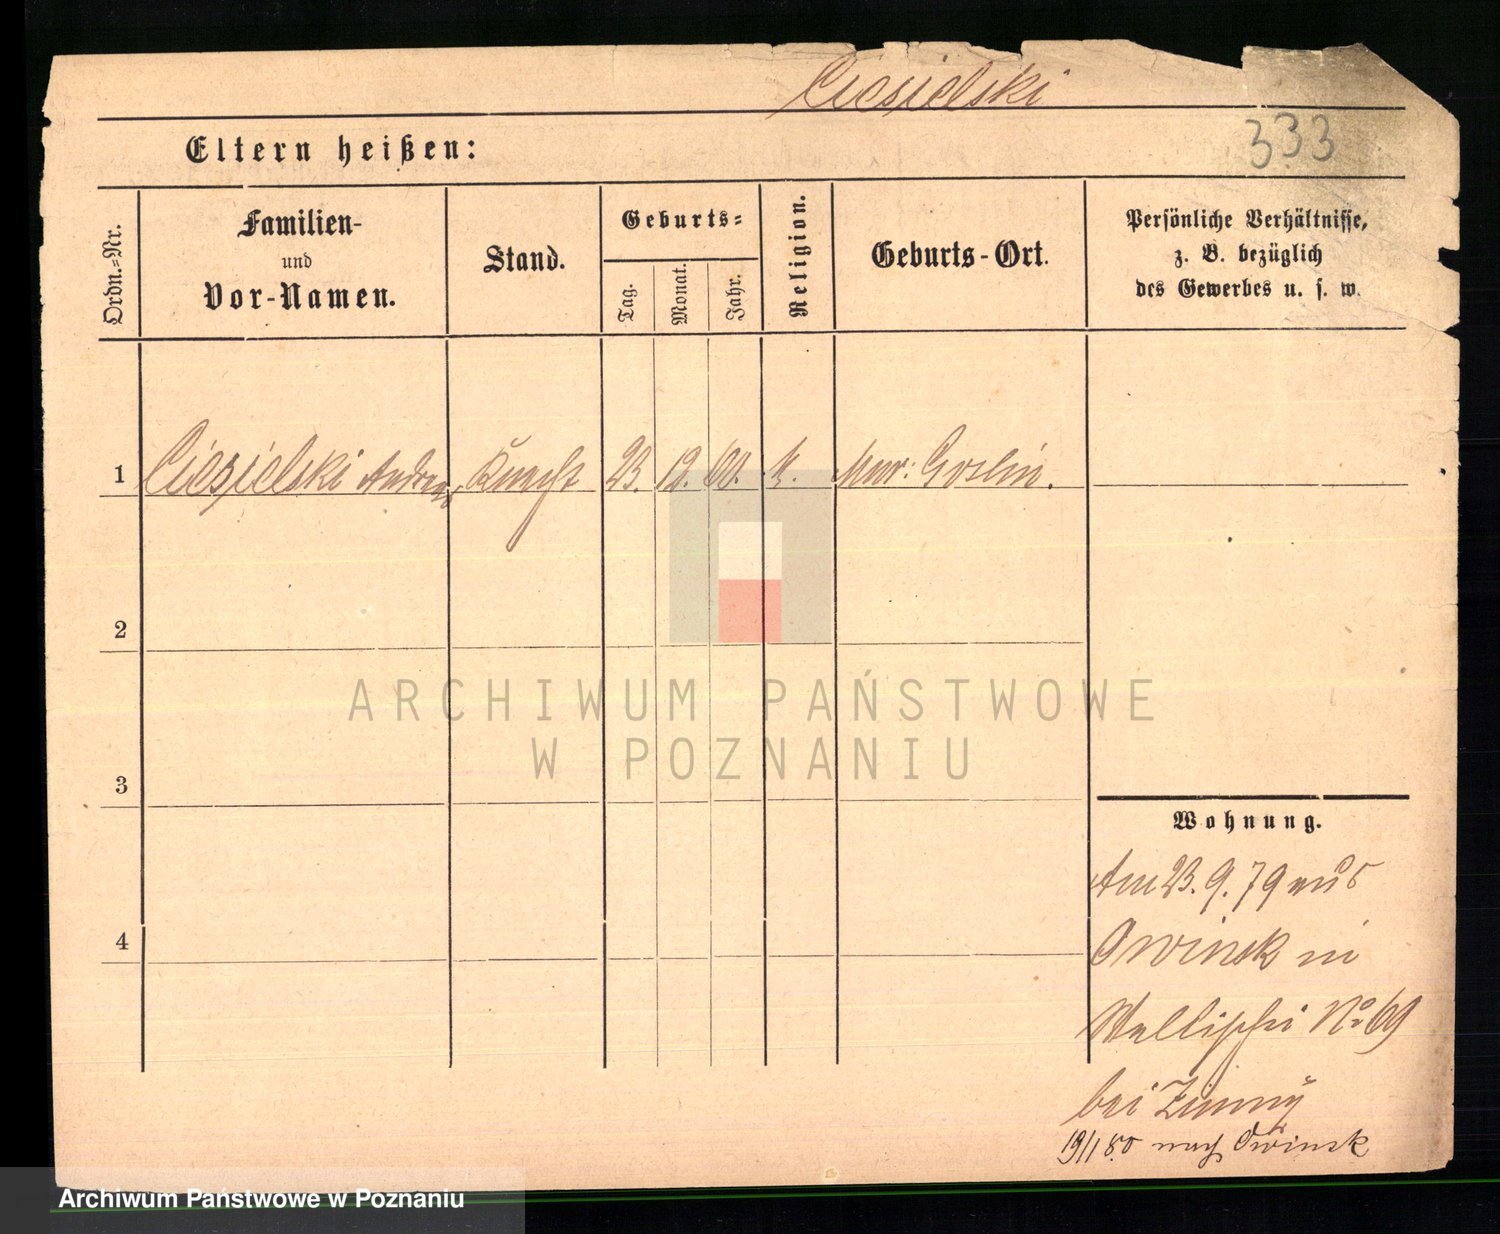 Ciesielski
333
Eltern heißen:
Ordn.=Nr.
Familien-
und
Vor-Namen.
Stand.
Geburts=
Tag.
Monat.
Jahr.
Religion.
Geburts-Ort.
Persönliche Verhältnisse,
z. B. bezüglich
des Gewerbes u. s. w.
1 Ciesielski Andreas Knecht 23. 12. 60. k. Mur: Goslin.
2
3
4
Wohnung.
Am 23. 9. 79 aus
Owinsk in
Wallischei No 69
bei Zimny
19/1 80 nach Owinsk
ARCHIWUM PAŃSTWOWE
W POZNANIU
Archiwum Państwowe w Poznaniu